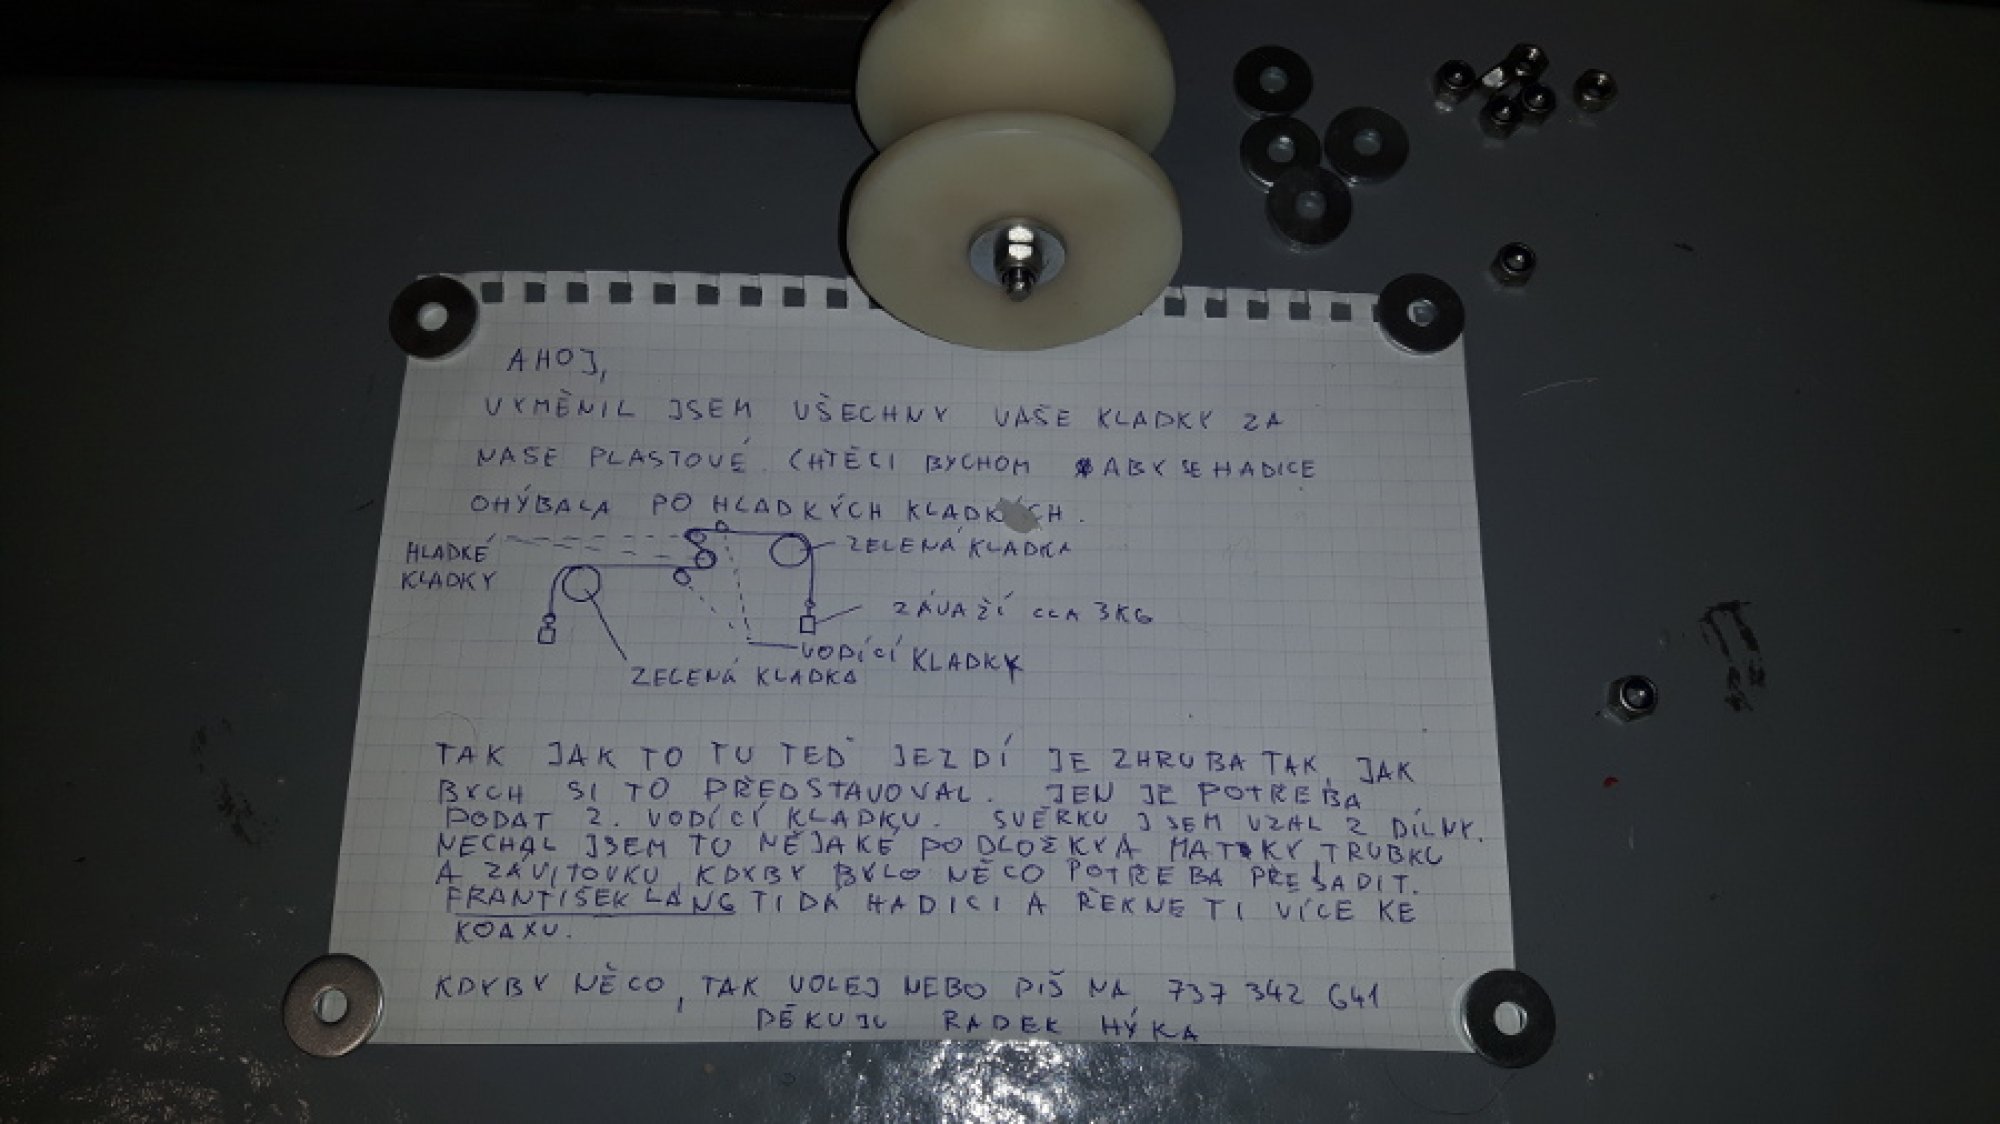 AHOJ,
VYMĚNIL JSEM VŠECHNY VAŠE KLADKY ZA
NAŠE PLASTOVÉ. CHTĚLI BYCHOM ABY SE HADICE
OHÝBALA PO HLADKÝCH KLADKÁCH.
HLADKÉ
KLADKY
ZELENÁ KLADKA
ZÁVAŽÍ CCA 3KG
VODÍCÍ KLADKY
ZELENÁ KLADKA
TAK JAK TO TU TEĎ JEZDÍ JE ZHRUBA TAK, JAK
BYCH SI TO PŘEDSTAVOVAL. JEN JE POTŘEBA
PODAT 2. VODÍCÍ KLADKU. SVĚRKU JSEM VZAL Z DÍLNY.
NECHAL JSEM TU NĚJAKÉ PODLOŽKY A MATKY, TRUBKU
A ZÁVITOVKU, KDYBY BYLO NĚCO POTŘEBA PŘESADIT.
FRANTIŠEK LANG TI DÁ HADICI A ŘEKNE TI VÍCE KE
KOAXU.
KDYBY NĚCO, TAK VOLEJ NEBO PIŠ NA 737 342 641
DĚKUJU RADEK HÝKA